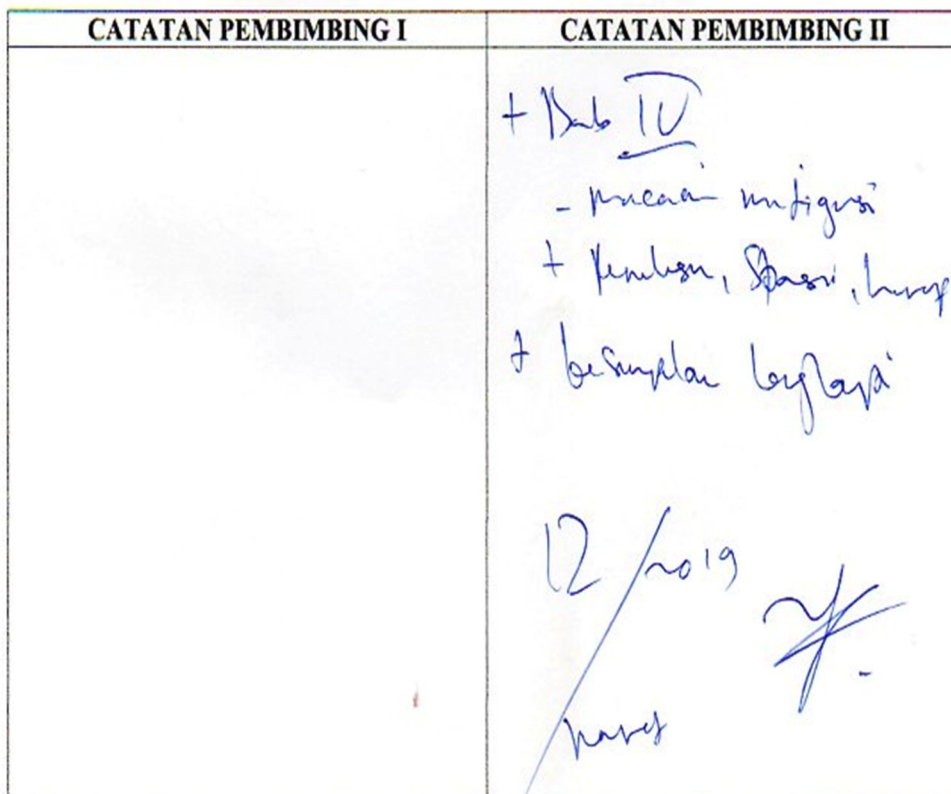 CATATAN PEMBIMBING I
CATATAN PEMBIMBING II
+ Bab IV
-
+ Penulisan, Spasi, huruf
+ kesimpulan lengkapi
12 / 2019
Maret